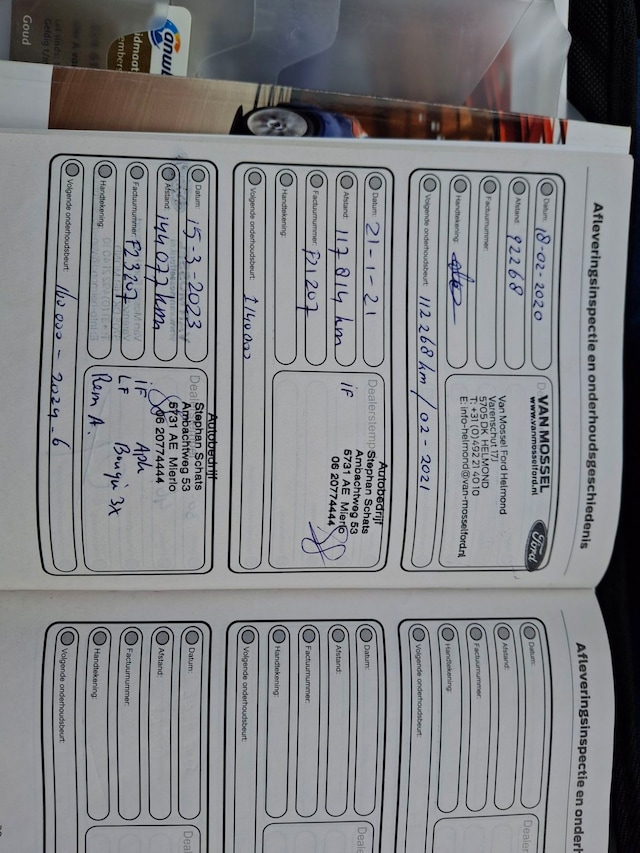 anwb
Goud
Afleveringsinspectie en onderhoudsgeschiedenis
Datum: 18-02-2020
Afstand: 92268
Factuurnummer:
Handtekening:
Volgende onderhoudsbeurt: 112268 km / 02-2021
VAN MOSSEL
www.vanmosselford.nl
Ford
Van Mossel Ford Helmond
Varenschut 17J
5705 DK HELMOND
T: +31 (0)492 21 40 10
E: info-helmond@van-mosselford.nl
Datum: 21-1-21
Afstand: 117814 km
Factuurnummer: F21207
Handtekening:
Volgende onderhoudsbeurt: 140000
Dealerstempel
Autobedrijf
Stephan Schats
Ambachtweg 53
5731 AE Mierlo
06 20774444
IF
Datum: 15-3-2023
Afstand: 144077 km
Factuurnummer: F23207
Handtekening:
Volgende onderhoudsbeurt: 160000 - 2024-6
Autobedrijf
Stephan Schats
Ambachtweg 53
5731 AE Mierlo
06 20774444
IF
LF Bougie 3x
Rem A.
Afleveringsinspectie en onderh
Datum:
Afstand:
Factuurnummer:
Handtekening:
Volgende onderhoudsbeurt:
Dealer
Datum:
Afstand:
Factuurnummer:
Handtekening:
Volgende onderhoudsbeurt:
Deal
Datum:
Afstand:
Factuurnummer:
Handtekening:
Volgende onderhoudsbeurt:
Deal